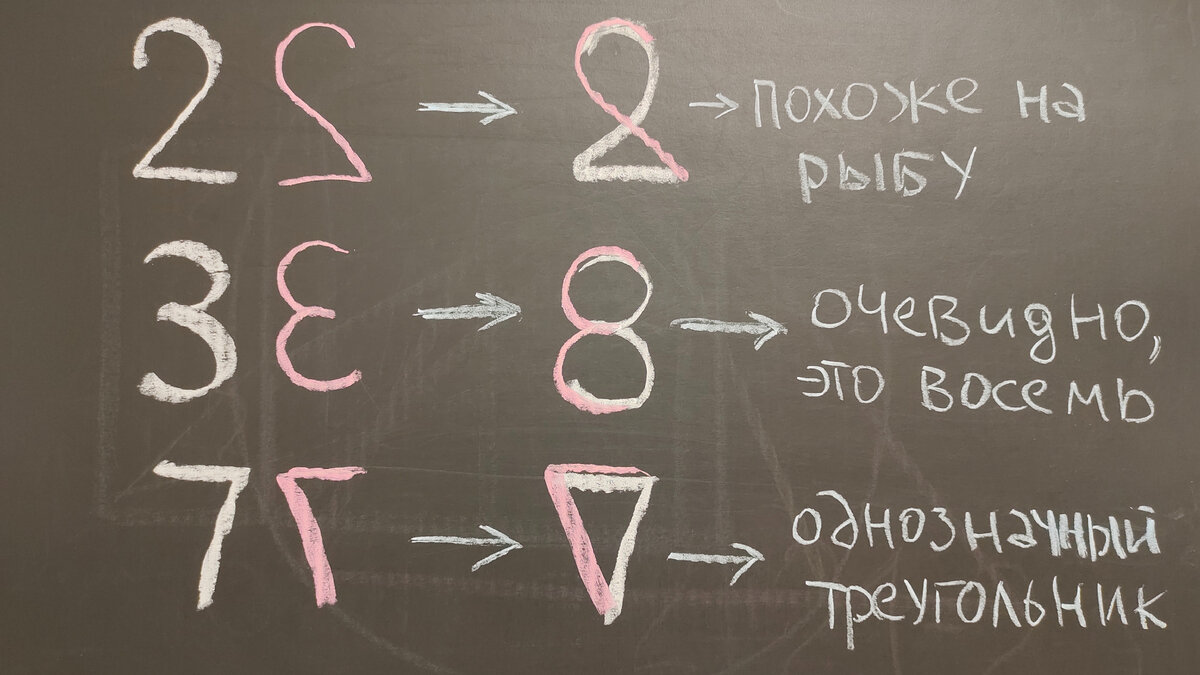 2 2 → 2 → похоже на
рыбу
3 3 → 8 → очевидно,
это восемь
7 7 → → однозначный
треугольник